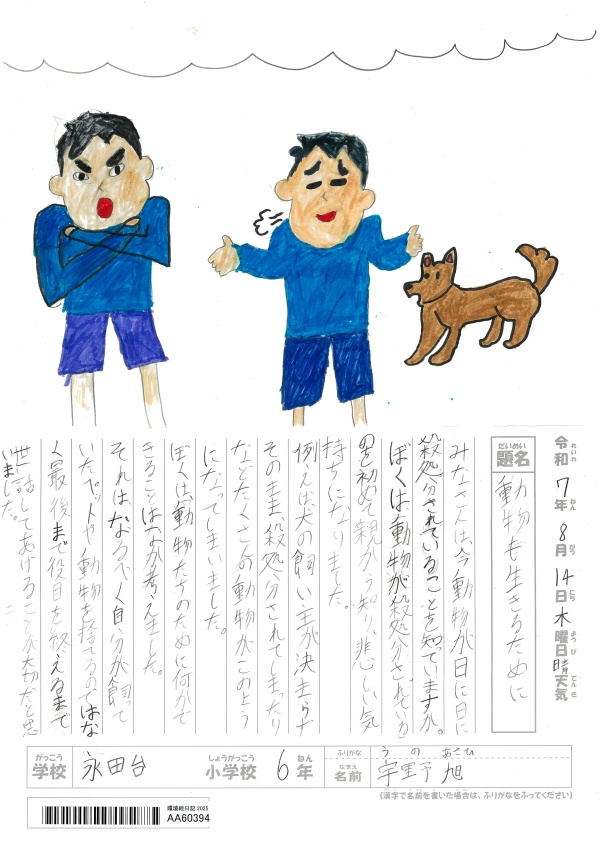 令和7年8月14日木曜日晴天気
れいわ ねん がつ にち ようび てんき
だいめい
題名
動物も生きるために
みなさんは、今動物が日に日に
殺処分されていることを知っていますか。
ぼくは、動物が殺処分されている
事を初めて親から知り、悲しい気
持ちになりました。
例えば犬の飼い主が決まらず
そのまま、殺処分されてしまったり
などたくさんの動物がこのよう
になってしまいました。
ぼくは、動物たちのために何かで
きることはないか考えました。
それは、なるべく自分が飼って
いたペットや動物を捨てるのではな
く最後まで役目を終えるまで
世話してあげることが大切だと思
いました。
がっこう
学校
永田台
しょうがっこう
小学校
6年
ねん
ふりがな
うの あさひ
なまえ
名前
宇野 旭
(漢字で名前を書いた場合は、ふりがなをふってください)
環境絵日記 2025
AA60394